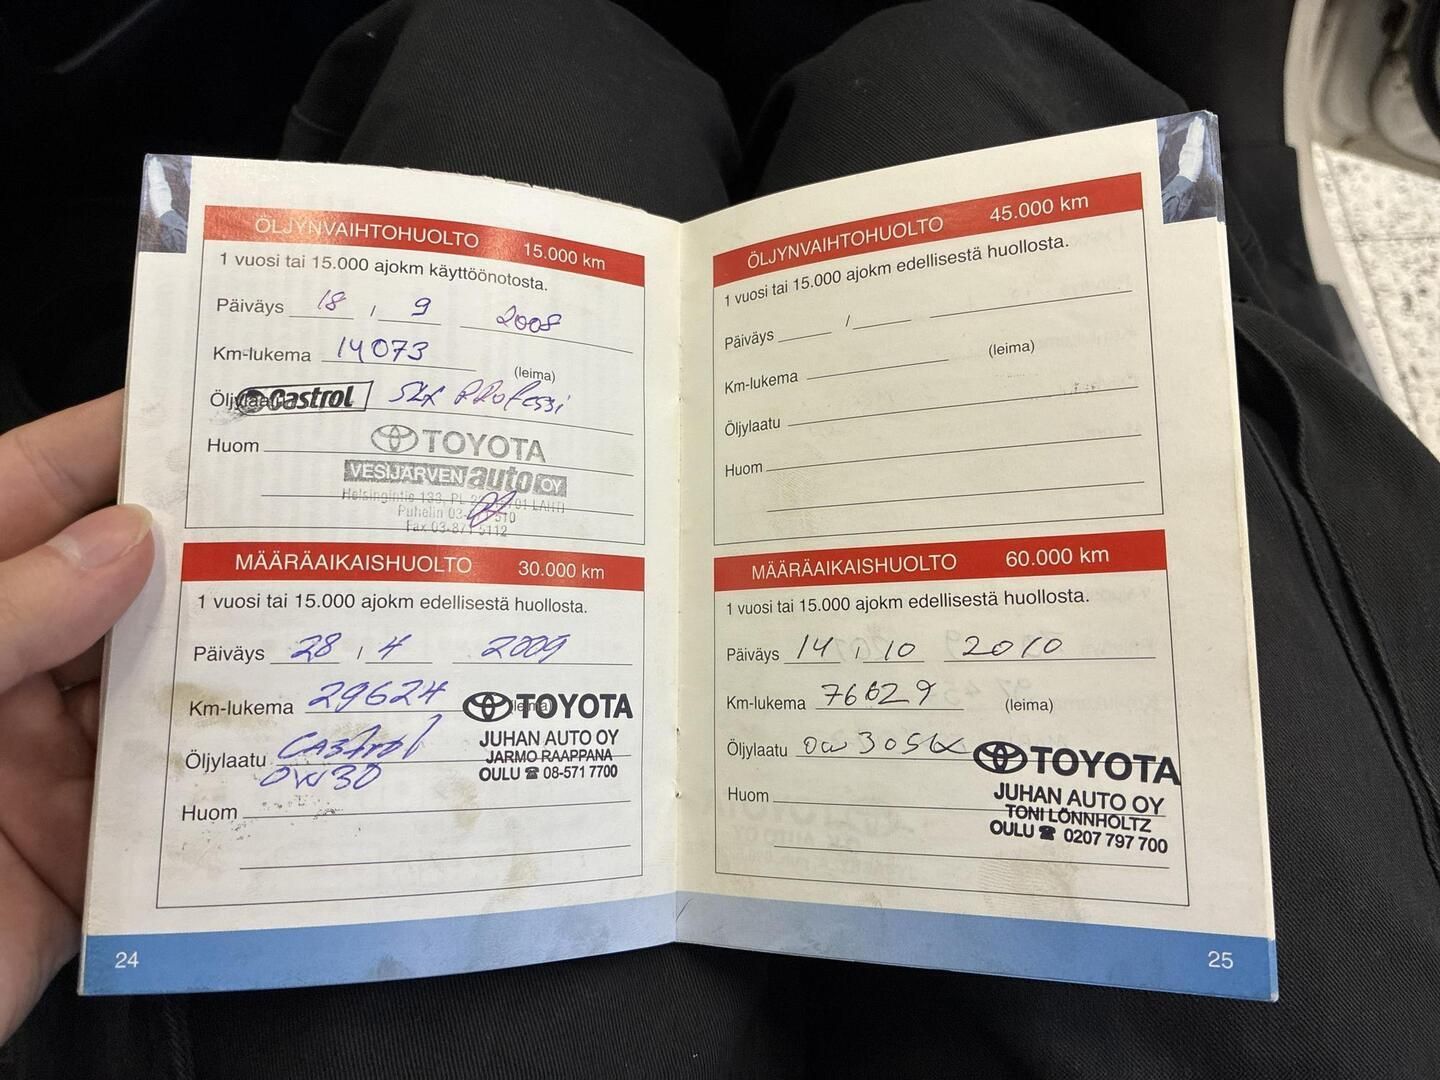 ÖLJYNVAIHTOHUOLTO 15.000 km
1 vuosi tai 15.000 ajokm käyttöönotosta.
Päiväys 18 / 9 2008
Km-lukema 14073
(leima)
Öljylaatu Castrol SLX Professi
Huom TOYOTA
VESIJÄRVEN auto OY
Helsingintie 133, PL LAHTI
Puhelin 03-
Fax 03-871 5112
MÄÄRÄAIKAISHUOLTO 30.000 km
1 vuosi tai 15.000 ajokm edellisestä huollosta.
Päiväys 28 / 4 2009
Km-lukema 29624 (leima) TOYOTA
Öljylaatu Castrol JUHAN AUTO OY
JARMO RAAPPANA
0W30 OULU ☎ 08-571 7700
Huom
24
ÖLJYNVAIHTOHUOLTO 45.000 km
1 vuosi tai 15.000 ajokm edellisestä huollosta.
Päiväys /
Km-lukema (leima)
Öljylaatu
Huom
MÄÄRÄAIKAISHUOLTO 60.000 km
1 vuosi tai 15.000 ajokm edellisestä huollosta.
Päiväys 14 / 10 2010
Km-lukema 76629 (leima)
Öljylaatu 0w30 SLX TOYOTA
Huom JUHAN AUTO OY
TONI LÖNNHOLTZ
OULU ☎ 0207 797 700
25